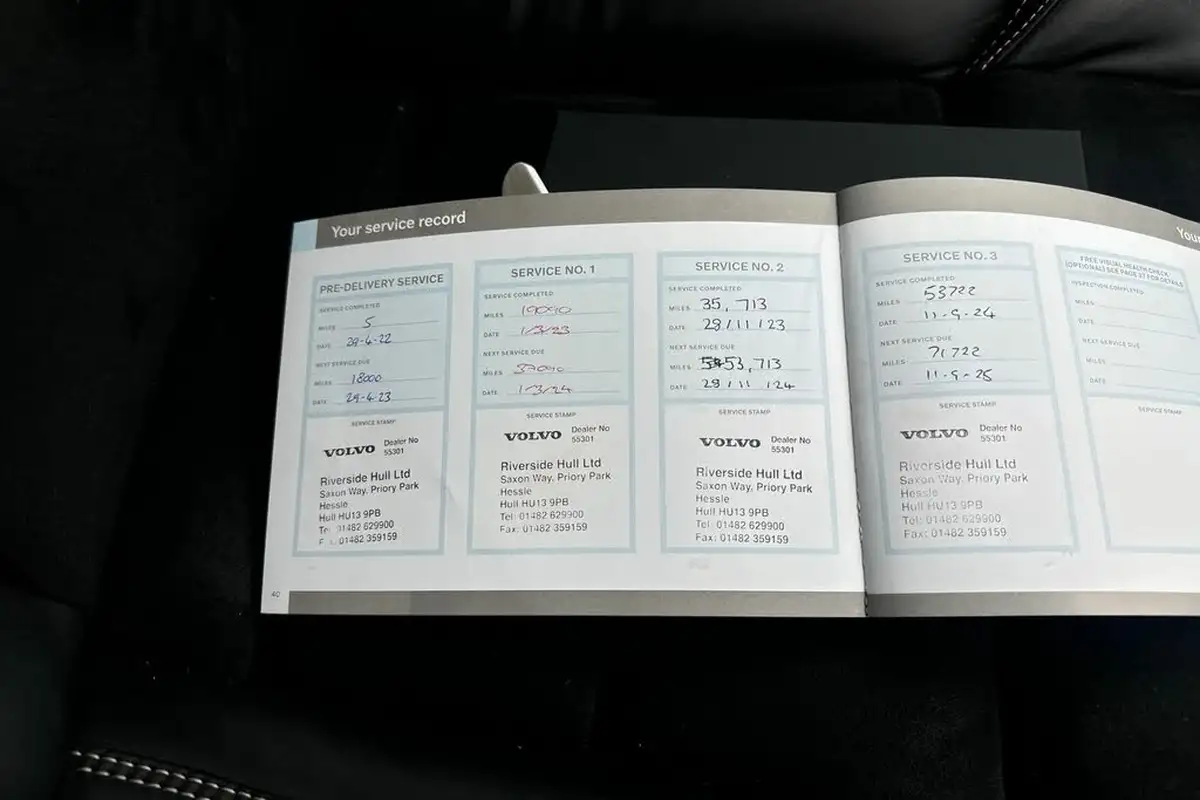 Your service record
PRE-DELIVERY SERVICE
SERVICE COMPLETED
MILES 5
DATE 29-4-22
NEXT SERVICE DUE
MILES 18000
DATE 29-4-23
SERVICE STAMP
VOLVO Dealer No
55301
Riverside Hull Ltd
Saxon Way, Priory Park
Hessle
Hull HU13 9PB
Tel: 01482 629900
Fax: 01482 359159
SERVICE NO. 1
SERVICE COMPLETED
MILES 19090
DATE 1/3/23
NEXT SERVICE DUE
MILES 37090
DATE 1/3/24
SERVICE STAMP
VOLVO Dealer No
55301
Riverside Hull Ltd
Saxon Way, Priory Park
Hessle
Hull HU13 9PB
Tel: 01482 629900
Fax: 01482 359159
SERVICE NO. 2
SERVICE COMPLETED
MILES 35,713
DATE 29/11/23
NEXT SERVICE DUE
MILES 53,713
DATE 29/11/24
SERVICE STAMP
VOLVO Dealer No
55301
Riverside Hull Ltd
Saxon Way, Priory Park
Hessle
Hull HU13 9PB
Tel: 01482 629900
Fax: 01482 359159
40
SERVICE NO. 3
SERVICE COMPLETED
MILES 53722
DATE 11-9-24
NEXT SERVICE DUE
MILES 71722
DATE 11-9-25
SERVICE STAMP
VOLVO Dealer No
55301
Riverside Hull Ltd
Saxon Way, Priory Park
Hessle
Hull HU13 9PB
Tel: 01482 629900
Fax: 01482 359159
Your
FREE VISUAL HEALTH CHECK
(OPTIONAL) SEE PAGE 37 FOR DETAILS
INSPECTION COMPLETED
MILES
DATE
NEXT SERVICE DUE
MILES
DATE
SERVICE STAMP